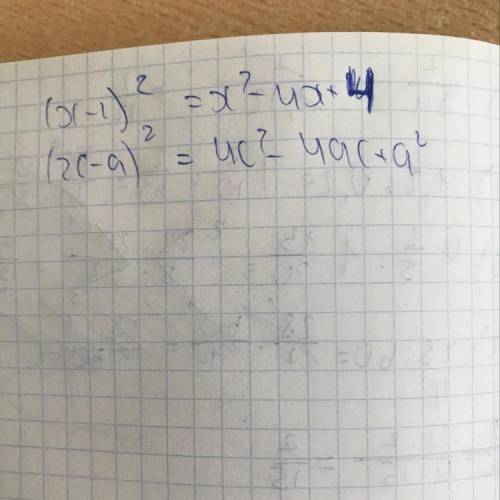 (x-2)² = x²-4x+4
(2c-a)² = 4c²-4ac+a²